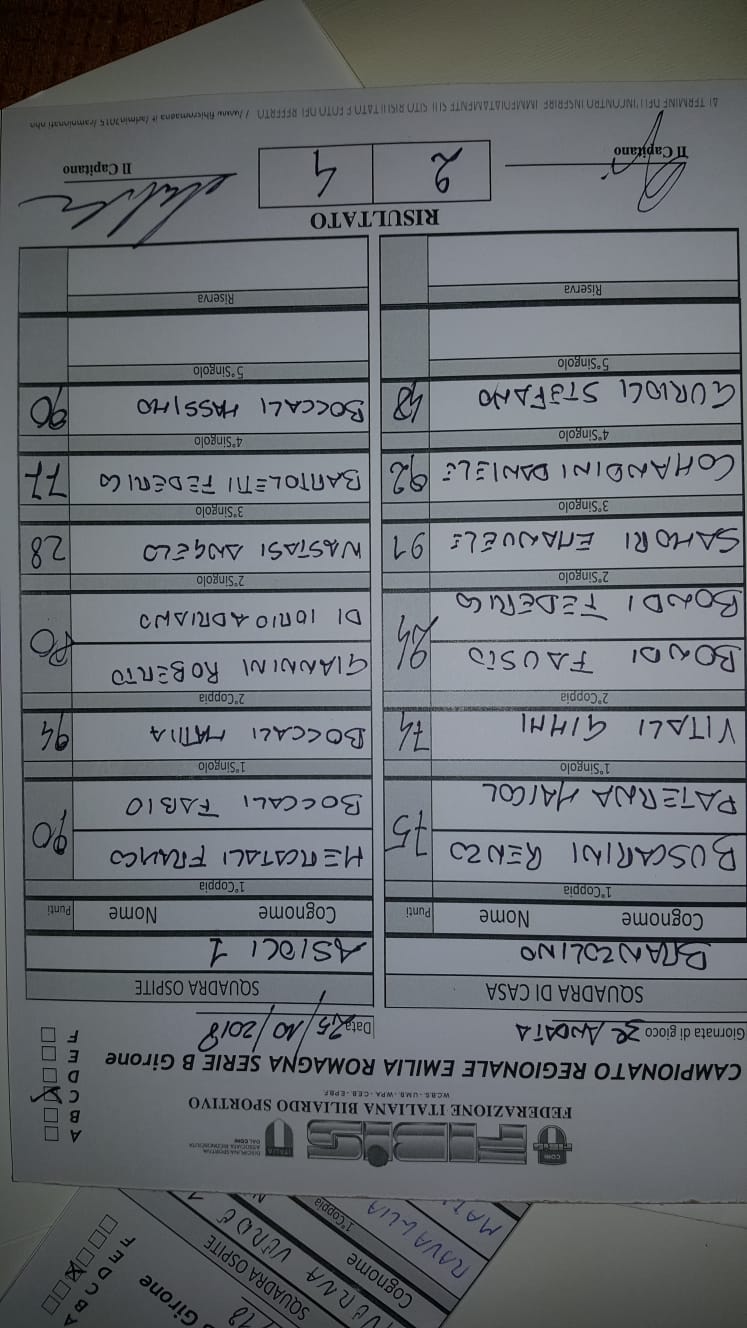 FEDERAZIONE ITALIANA BILIARDO SPORTIVO
W.C.B.S. - U.M.B. - W.P.A. - C.E.B. - E.P.B.F.
CONI
FIBiS
DISCIPLINA SPORTIVA
ASSOCIATA RICONOSCIUTA
DAL CONI
CAMPIONATO REGIONALE EMILIA ROMAGNA SERIE B Girone
A
B
C
D
E
F
Giornata di gioco 3ª ANDATA Data 25/10/2018
SQUADRA DI CASA SQUADRA OSPITE
BRANZOLINO ASIOLI 1
Cognome Nome Punti Cognome Nome Punti
1°Coppia 1°Coppia
BUSCARINI RENZO 75 MERCATALI FRANCO 90
PATERNA MAICOL BOCCALI FABIO
1°Singolo 1°Singolo
VITALI GIMMI 74 BOCCALI MATTIA 94
2°Coppia 2°Coppia
BONDI FAUSTO GIANNINI ROBERTO 80
BONDI FEDERICO DI IORIO ADRIANO
2°Singolo 2°Singolo
SAMORI EMANUELE 91 NASTASI ANGELO 28
3°Singolo 3°Singolo
COMANDINI DANIELE 92 BARTOLETTI FEDERICO 77
4°Singolo 4°Singolo
GURIOLI STEFANO 48 BOCCALI MASSIMO 90
5°Singolo 5°Singolo
Riserva Riserva
RISULTATO
Il Capitano 2 4 Il Capitano
AL TERMINE DELL'INCONTRO INSERIRE IMMEDIATAMENTE SUL SITO RISULTATO E FOTO DEL REFERTO
Girone
A B C D E F
SQUADRA OSPITE
VERDE
Cognome
1°Coppia
RAVAGLIA